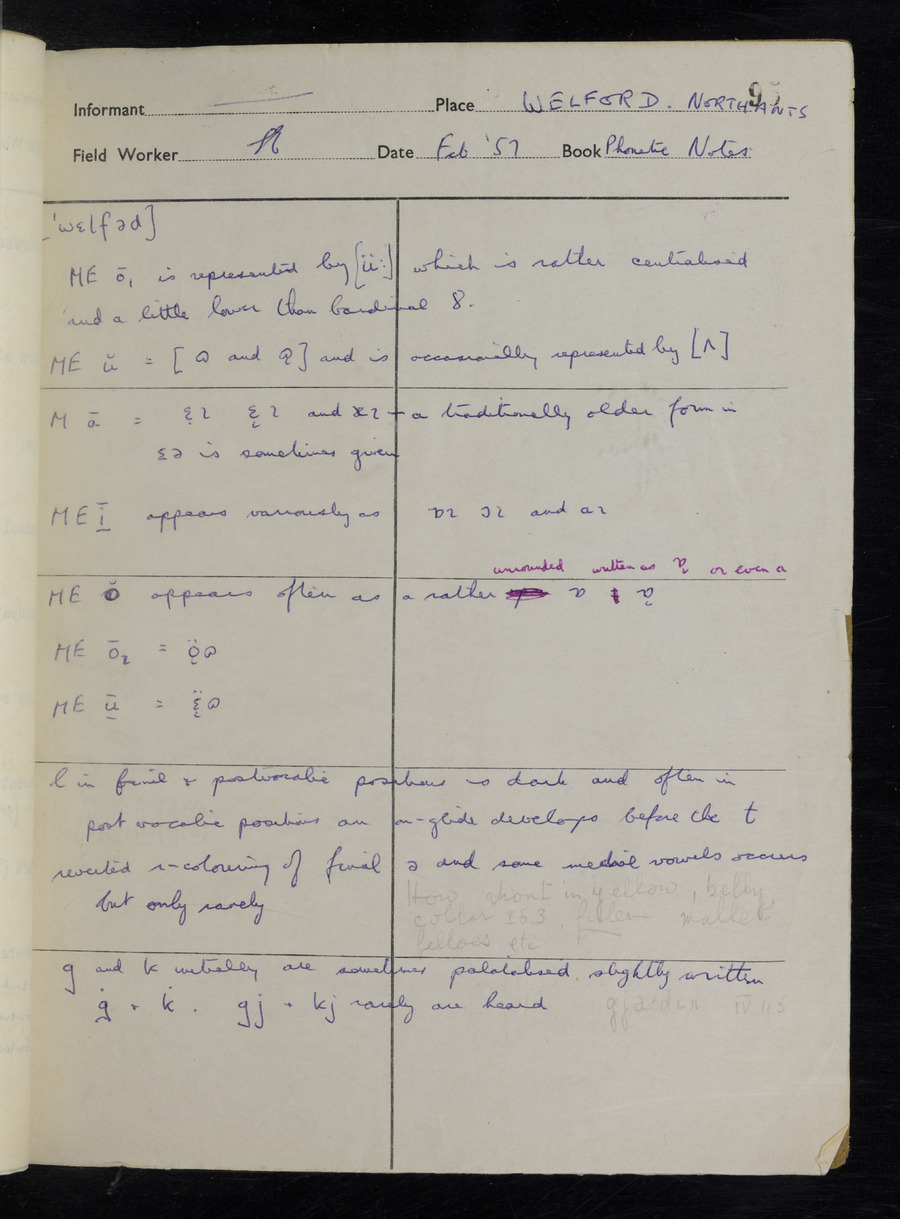 95
Informant Place WELFORD. NORTHANTS
Field Worker Date Feb '57 Book Phonetic Notes
['wɛlfəd]
ME ō₁ is represented by [üː] which is rather centralised
and a little lower than Cardinal 8.
ME ŭ = [ɷ and ɷ̣] and is occasionally represented by [ʌ]
M ā = and – a traditionally older form in
ɛə is sometimes given
ME ī appears variously as ɒɩ ɔɩ and aɩ
unrounded written as or even a
ME ŏ appears often as a rather ɒ
ME ō₂ = ö̞ɷ
ME ū = ɛ̈ɷ
l in final & postvocalic positions is dark and often in
post vocalic positions an on-glide develops before the ɫ
reverted r-colouring of final ə and some medial vowels occurs
but only rarely
How about in yellow, belly,
collar I.5.3 mallet
felloes etc
g and k initially are sometimes palatalised slightly written
ġ + k̇. gj + kj rarely are heard